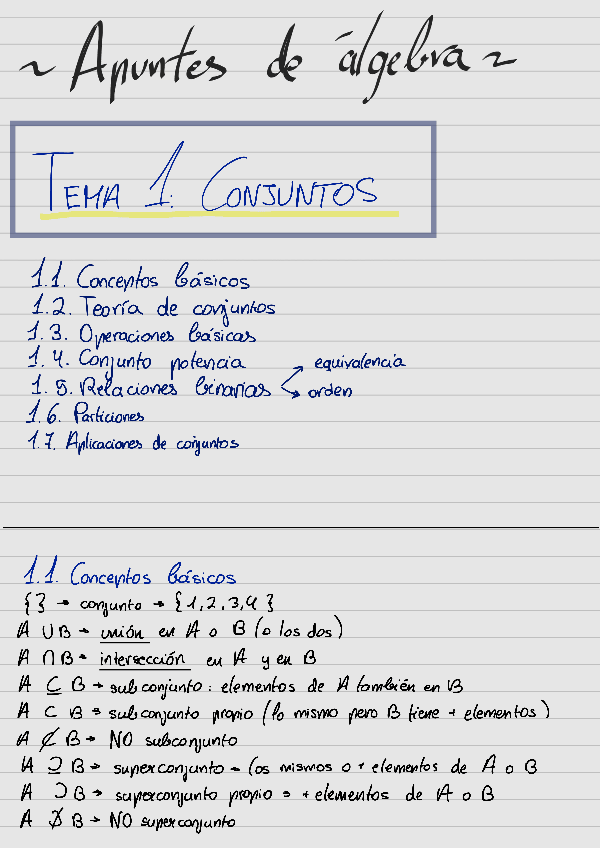 ~ Apuntes de álgebra ~
TEMA 1: CONJUNTOS
1.1. Conceptos básicos
1.2. Teoría de conjuntos
1.3. Operaciones básicas
1.4. Conjunto potencia
1.5. Relaciones binarias
equivalencia
orden
1.6. Particiones
1.7. Aplicaciones de conjuntos
1.1. Conceptos básicos
{} → conjunto → {1,2,3,4}
A ∪ B → unión en A o B (o los dos)
A ∩ B → intersección en A y en B
A ⊆ B → subconjunto: elementos de A también en B
A ⊂ B = subconjunto propio (lo mismo pero B tiene + elementos)
A ⊄ B → NO subconjunto
A ⊇ B → superconjunto = los mismos o + elementos de A o B
A ⊃ B → superconjunto propio = + elementos de A o B
A ⊅ B → NO superconjunto